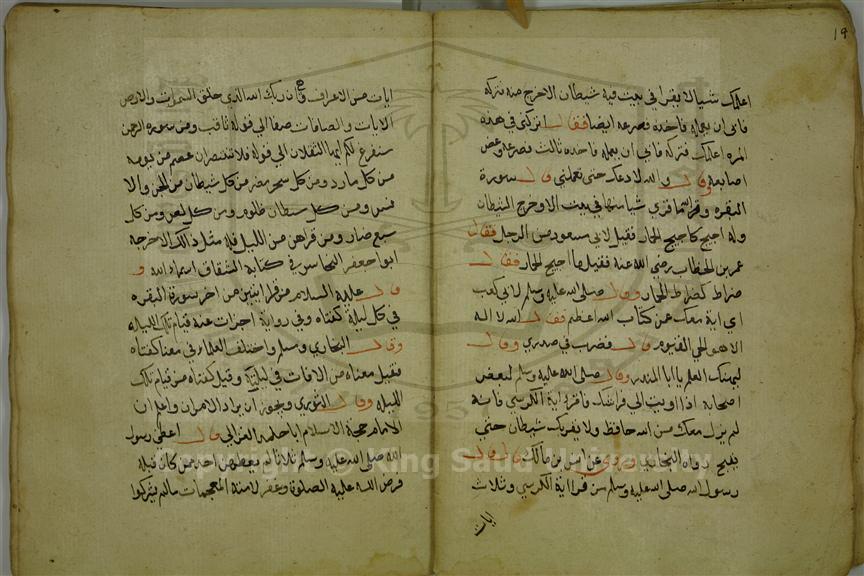 ١٩
اعلمك شيا لا يقرا في بيت فيه شيطان الا خرج منه فتركه
فابى ان يعلمه فاخده فصرعه ايضا فقال اتركني في هذه
المره اعلمك فتركه فابى ان يعلمه فاخده ثالث فصرعه وعض
اصابعه وقال والله لا ادعك حتى تعلمني قال سورة
البقره شيا منها في بيت الا وخرج الشيطان
وله كحجيج الحمار فقيل لابن مسعود من الرجل فقال
عمر بن الخطاب رضي الله عنه فقيل ما الحمار فقال
ضراط كضراط الحمار وقال صلى الله عليه وسلم لابي كعب
اي اية معك من كتاب الله اعظم فقال الله لا اله
الا هو الحي القيوم قال فضرب في صدري وقال
ليهنك العلم يا ابا المندر وقال صلى الله عليه وسلم لبعض
اصحابه اذا اويت الى فراشك فاقرا اية الكرسي فانه
لم يزل معك من الله حافظ ولا يقربك شيطان حتى
تصبح رواه البخاري وروى عن انس بن مالك قال قال
رسول الله صلى الله عليه وسلم من قرا اية الكرسي وثلاث
ايات
ايات من الاعراف وهي ان ربكم الله الذي خلق السموات والارض
الايات والصافات صفا الى قوله ثاقب ومن سورة الرحمن
سنفرغ لكم ايها الثقلان الى قوله فلا تنتصران عصم من يومه
من كل مارد ومن كل سحر مضر من كل شيطان من الجن والا
نس ومن كل سلطان ظلوم ومن كل لص ومن كل
سبع ضار ومن قراهن من الليل فله مثل ذالك اخرجه
ابو جعفر النحاس في كتابه اسماء الله و
قال عليه السلام من قرا ايتين من اخر سورة البقره
في كل ليلة كفتاه وفي رواية اجزات عنه قيام تلك الليله
وقال البخاري وسلم واختلف العلماء في معنا كفتاه
فقيل معناه من الافات في ليلته وقيل كفتاه من قيام تلك
الليله وقال النووي ويجوز ان يراد الامران واعلم ان
الامام حجة الاسلام ابا حامد الغزالي قال اعطي رسول
الله صلى الله عليه وسلم ثلاثا لم يعطهن احد من كان قبله
فرض الله عليه الصلوة وغفر لامته المقحمات مالم يشركوا
Copyright © King Saud University